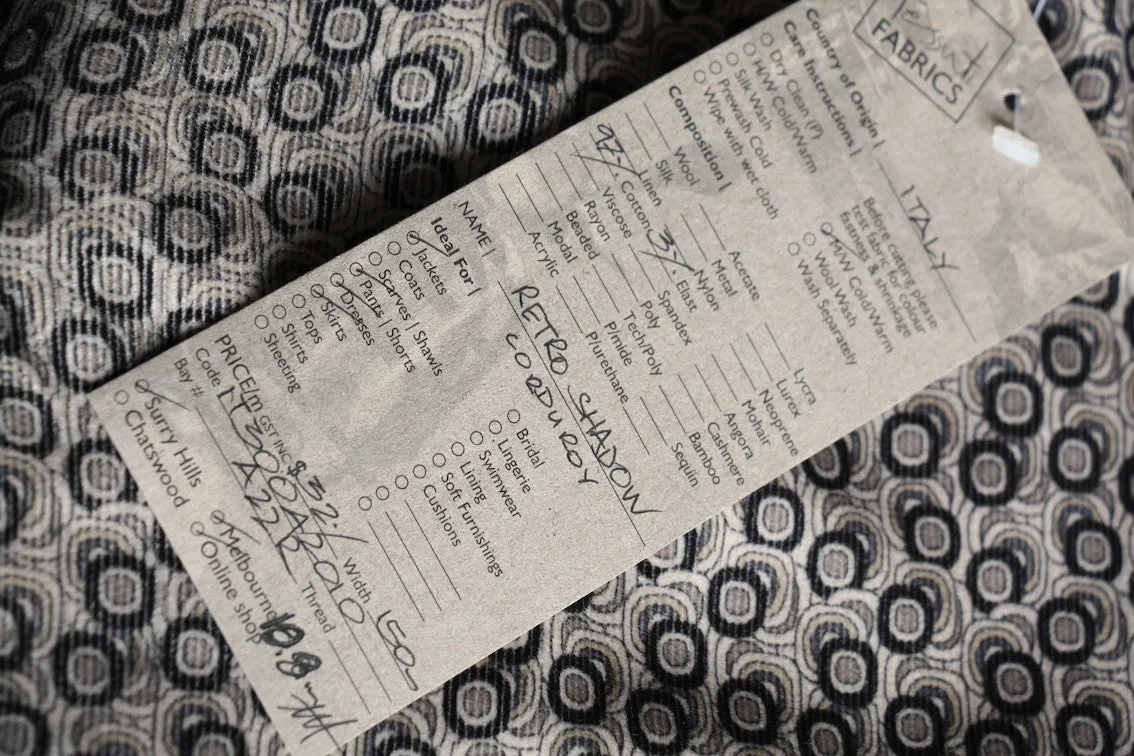 FABRICS
Country of Origin | ITALY
Care Instructions |
Dry Clean (P)
H/W Cold/Warm
Silk Wash
Prewash Cold
Wipe with wet cloth
Before cutting please
test fabric for colour
fastness & shrinkage
M/W Cold/Warm
Wool Wash
Wash Separately
Composition |
Wool
Silk
Linen
97% Cotton
Viscose
Rayon
Beaded
Modal
Acrylic
Acetate
Metal
Nylon
3% Elast
Spandex
Poly
Tech/Poly
P/mide
P/urethane
Lycra
Lurex
Neoprene
Mohair
Angora
Cashmere
Bamboo
Sequin
NAME | RETRO SHADOW
CORDUROY
Ideal For |
Jackets
Coats
Scarves | Shawls
Pants | Shorts
Dresses
Skirts
Tops
Shirts
Sheeting
Bridal
Lingerie
Swimwear
Lining
Soft Furnishings
Cushions
PRICE/m GST INC $32./ Width 150
Code
Bay # A22 Thread
Surry Hills
Chatswood
Melbourne
Online shop